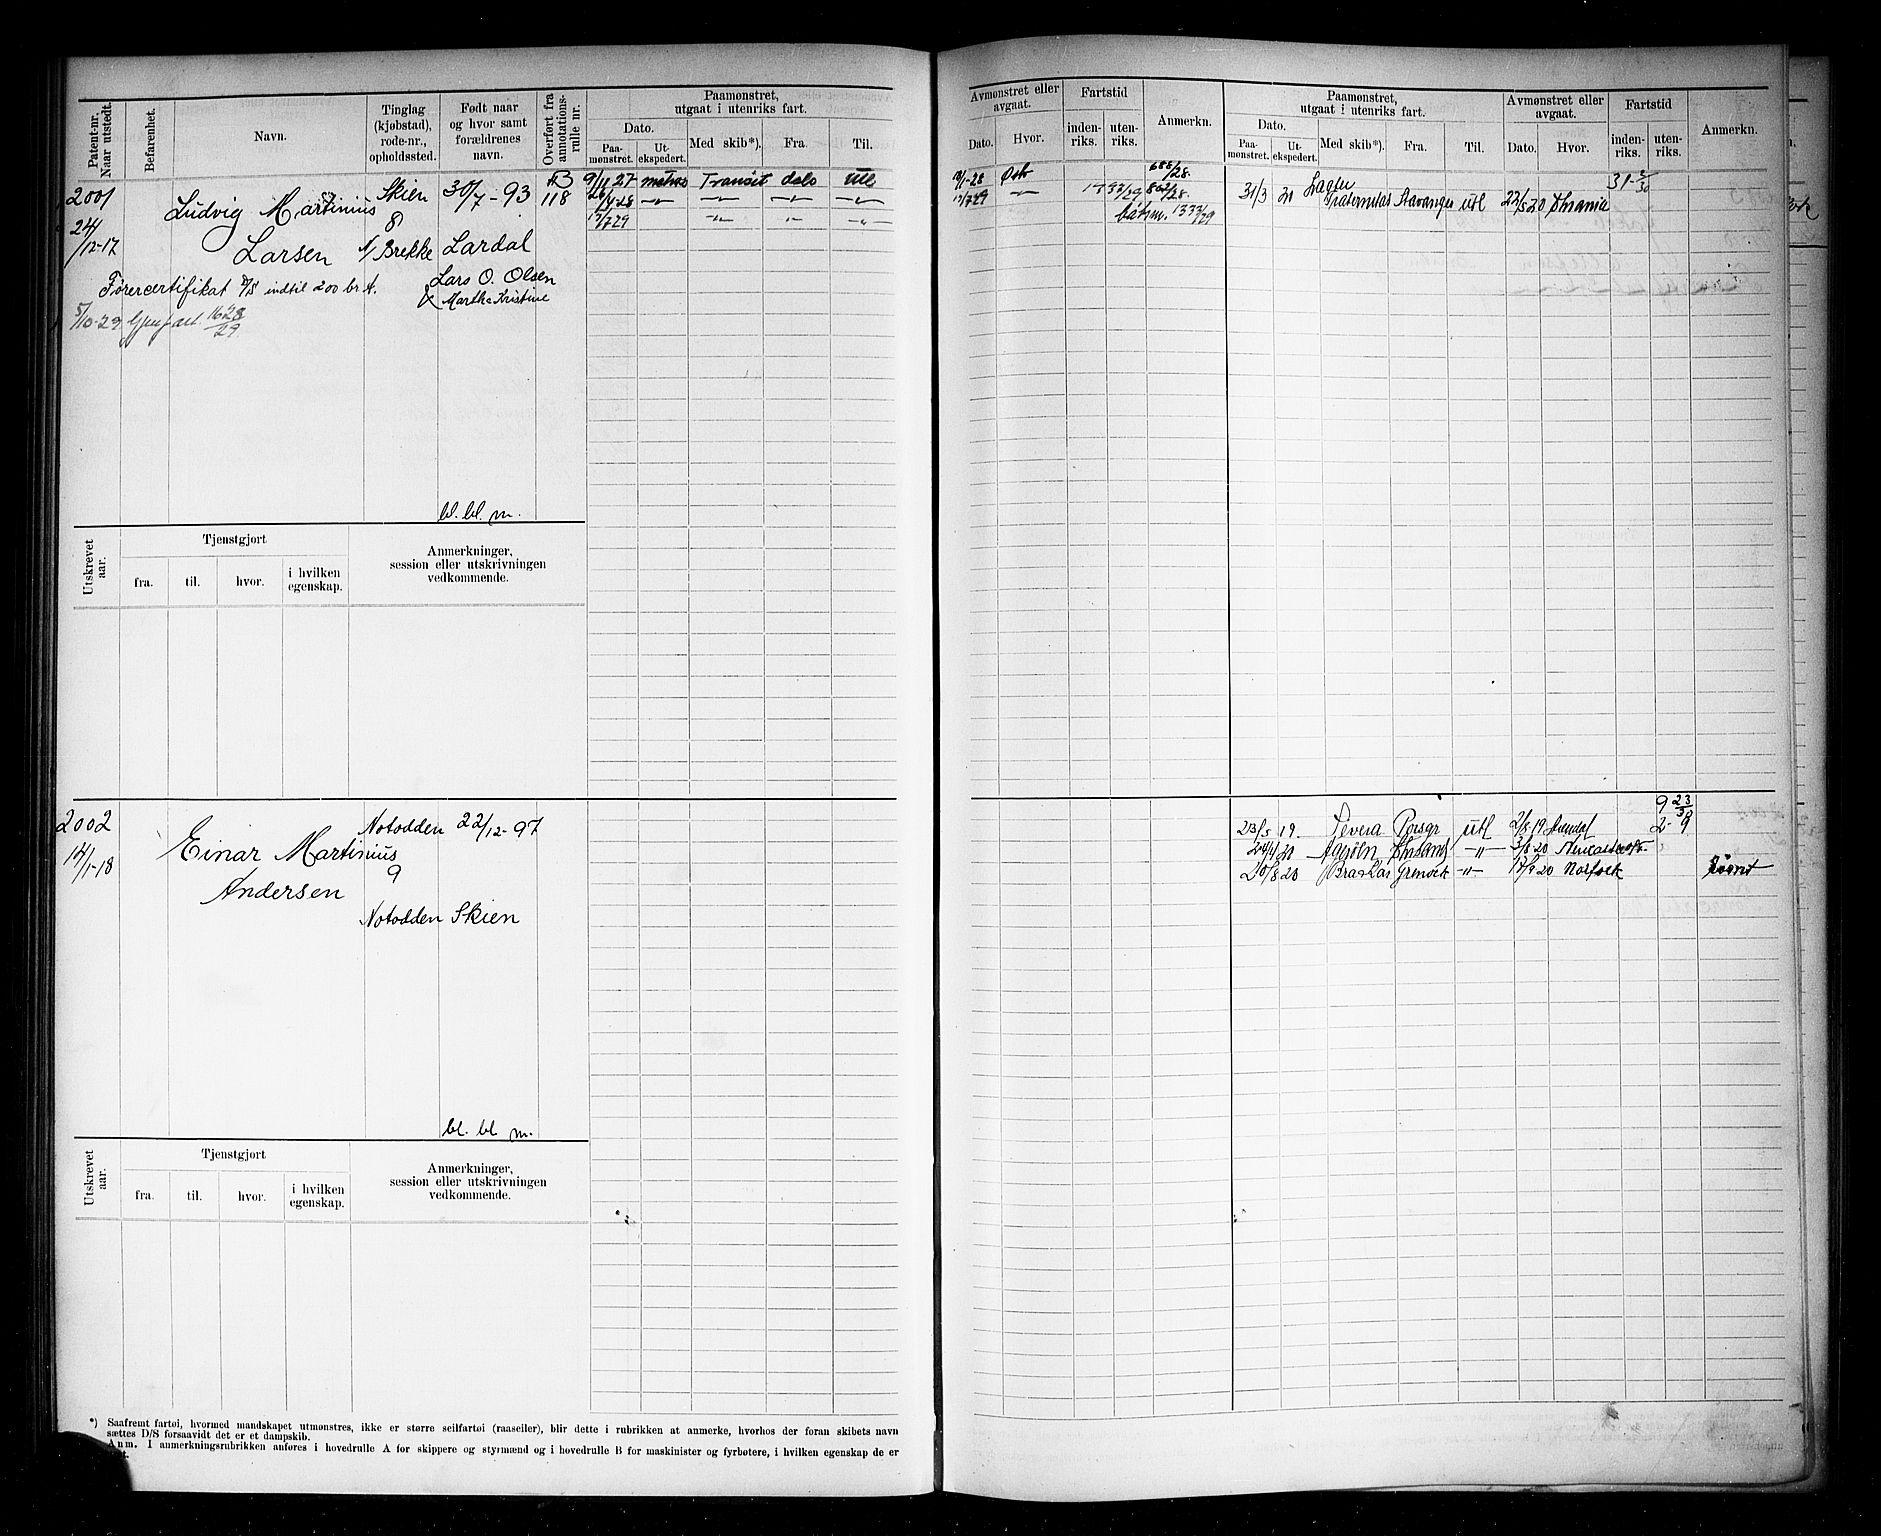 Patent-nr. Naar utstedt.
Befarenhet.
Navn.
Tinglag (kjøbstad), rode-nr., opholdssted.
Født naar og hvor samt forældrenes navn.
Overført fra annotations-rulle nr.
Paamønstret, utgaat i utenriks fart.
Dato.
Paa-mønstret.
Ut-ekspedert.
Med skib*).
Fra.
Til.
2001
24/12-17
Ludvig Martinius
Larsen
Skien
8
N/ Brekke
30/7-93
Lardal
Lars O. Olsen
Marthe Kristine
B
118
9/11 27 matros Transit dals utl
26/4 28 -"- -"- -"- -"-
17/7 29 -"- -"- -"-
Førercertifikat indtil 200 br. t.
5/10-29 Gjenpart. 1628/29
bl. bl. m.
Utskrevet aar.
Tjenstgjort
fra.
til.
hvor.
i hvilken egenskap.
Anmerkninger,
session eller utskrivningen
vedkommende.
2002
14/1-18
Einar Martinius
Andersen
Notodden
9
Notodden
22/12-97
Skien
bl. bl m.
Utskrevet aar.
Tjenstgjort
fra.
til.
hvor.
i hvilken egenskap.
Anmerkninger,
session eller utskrivningen
vedkommende.
*) Saafremt fartøi, hvormed mandskapet utmønstres, ikke er større seilfartøi (raaseiler), blir dette i rubrikken at anmerke, hvorhos der foran skibets navn
sættes D/S forsaavidt det er et dampskib.
Anm. I anmerkningsrubrikken anføres i hovedrulle A for skippere og styrmænd og i hovedrulle B for maskinister og fyrbøtere, i hvilken egenskap de er
Avmønstret eller avgaat.
Dato.
Hvor.
Fartstid
inden-riks.
uten-riks.
Anmerkn.
Paamønstret, utgaat i utenriks fart.
Dato.
Paa-mønstret.
Ut-ekspedert.
Med skib*).
Fra.
Til.
Avmønstret eller avgaat.
Dato.
Hvor.
Fartstid
inden-riks.
uten-riks.
Anmerkn.
688/28.
17/7 29 -"- 862/28.
båtsm. 1333/29
31/3 20 Fraternitas Stavanger utl 22/5 20
23/5 19. Porsgr utl 2/8 19 Arendal 2-9
24/4 20 -"- 3/8 20
20/8 20 -"- 17/9 20 Norfolk Rømt